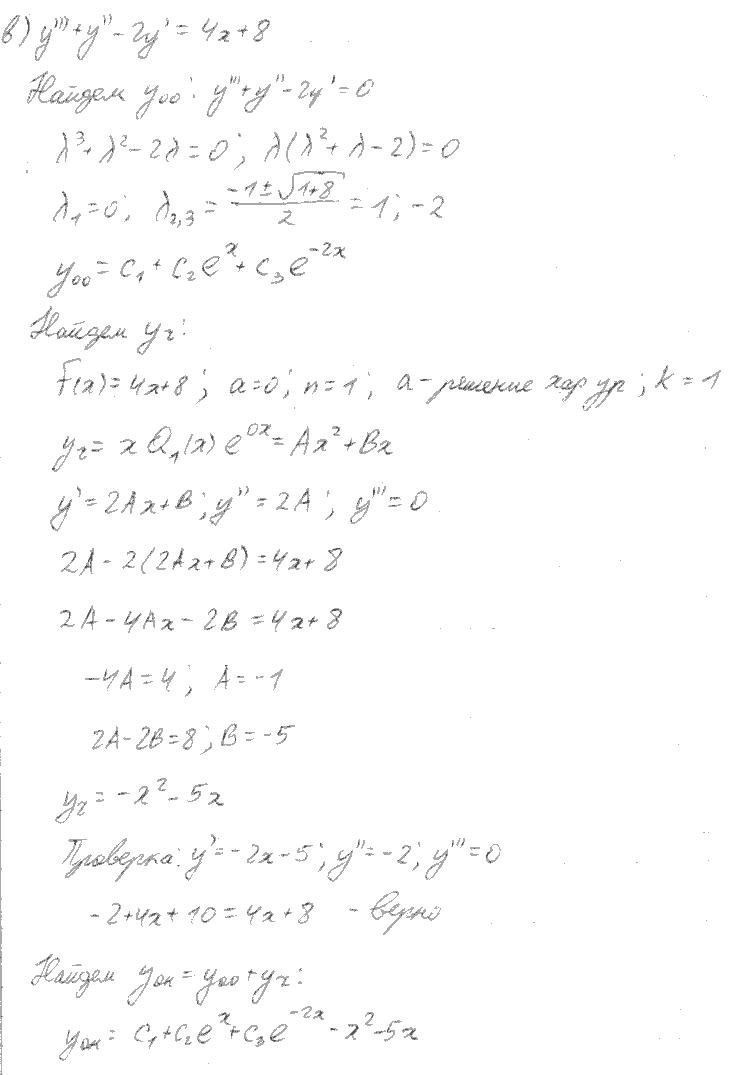 в) y''' + y'' - 2y' = 4x + 8
Найдем yоо: y''' + y'' - 2y' = 0
λ³ + λ² - 2λ = 0; λ(λ² + λ - 2) = 0
λ₁ = 0; λ₂,₃ = (-1 ± √(1+8))/2 = 1; -2
yоо = C₁ + C₂eˣ + C₃e⁻²ˣ
Найдем yч:
F(x) = 4x+8; a=0; n=1; a - решение хар ур; k = 1
yч = x Q₁(x) e⁰ˣ = Ax² + Bx
y' = 2Ax + B; y'' = 2A; y''' = 0
2A - 2(2Ax + B) = 4x + 8
2A - 4Ax - 2B = 4x + 8
-4A = 4; A = -1
2A - 2B = 8; B = -5
yч = -x² - 5x
Проверка: y' = -2x - 5; y'' = -2; y''' = 0
-2 + 4x + 10 = 4x + 8 - верно
Найдем yон = yоо + yч:
yон = C₁ + C₂eˣ + C₃e⁻²ˣ - x² - 5x